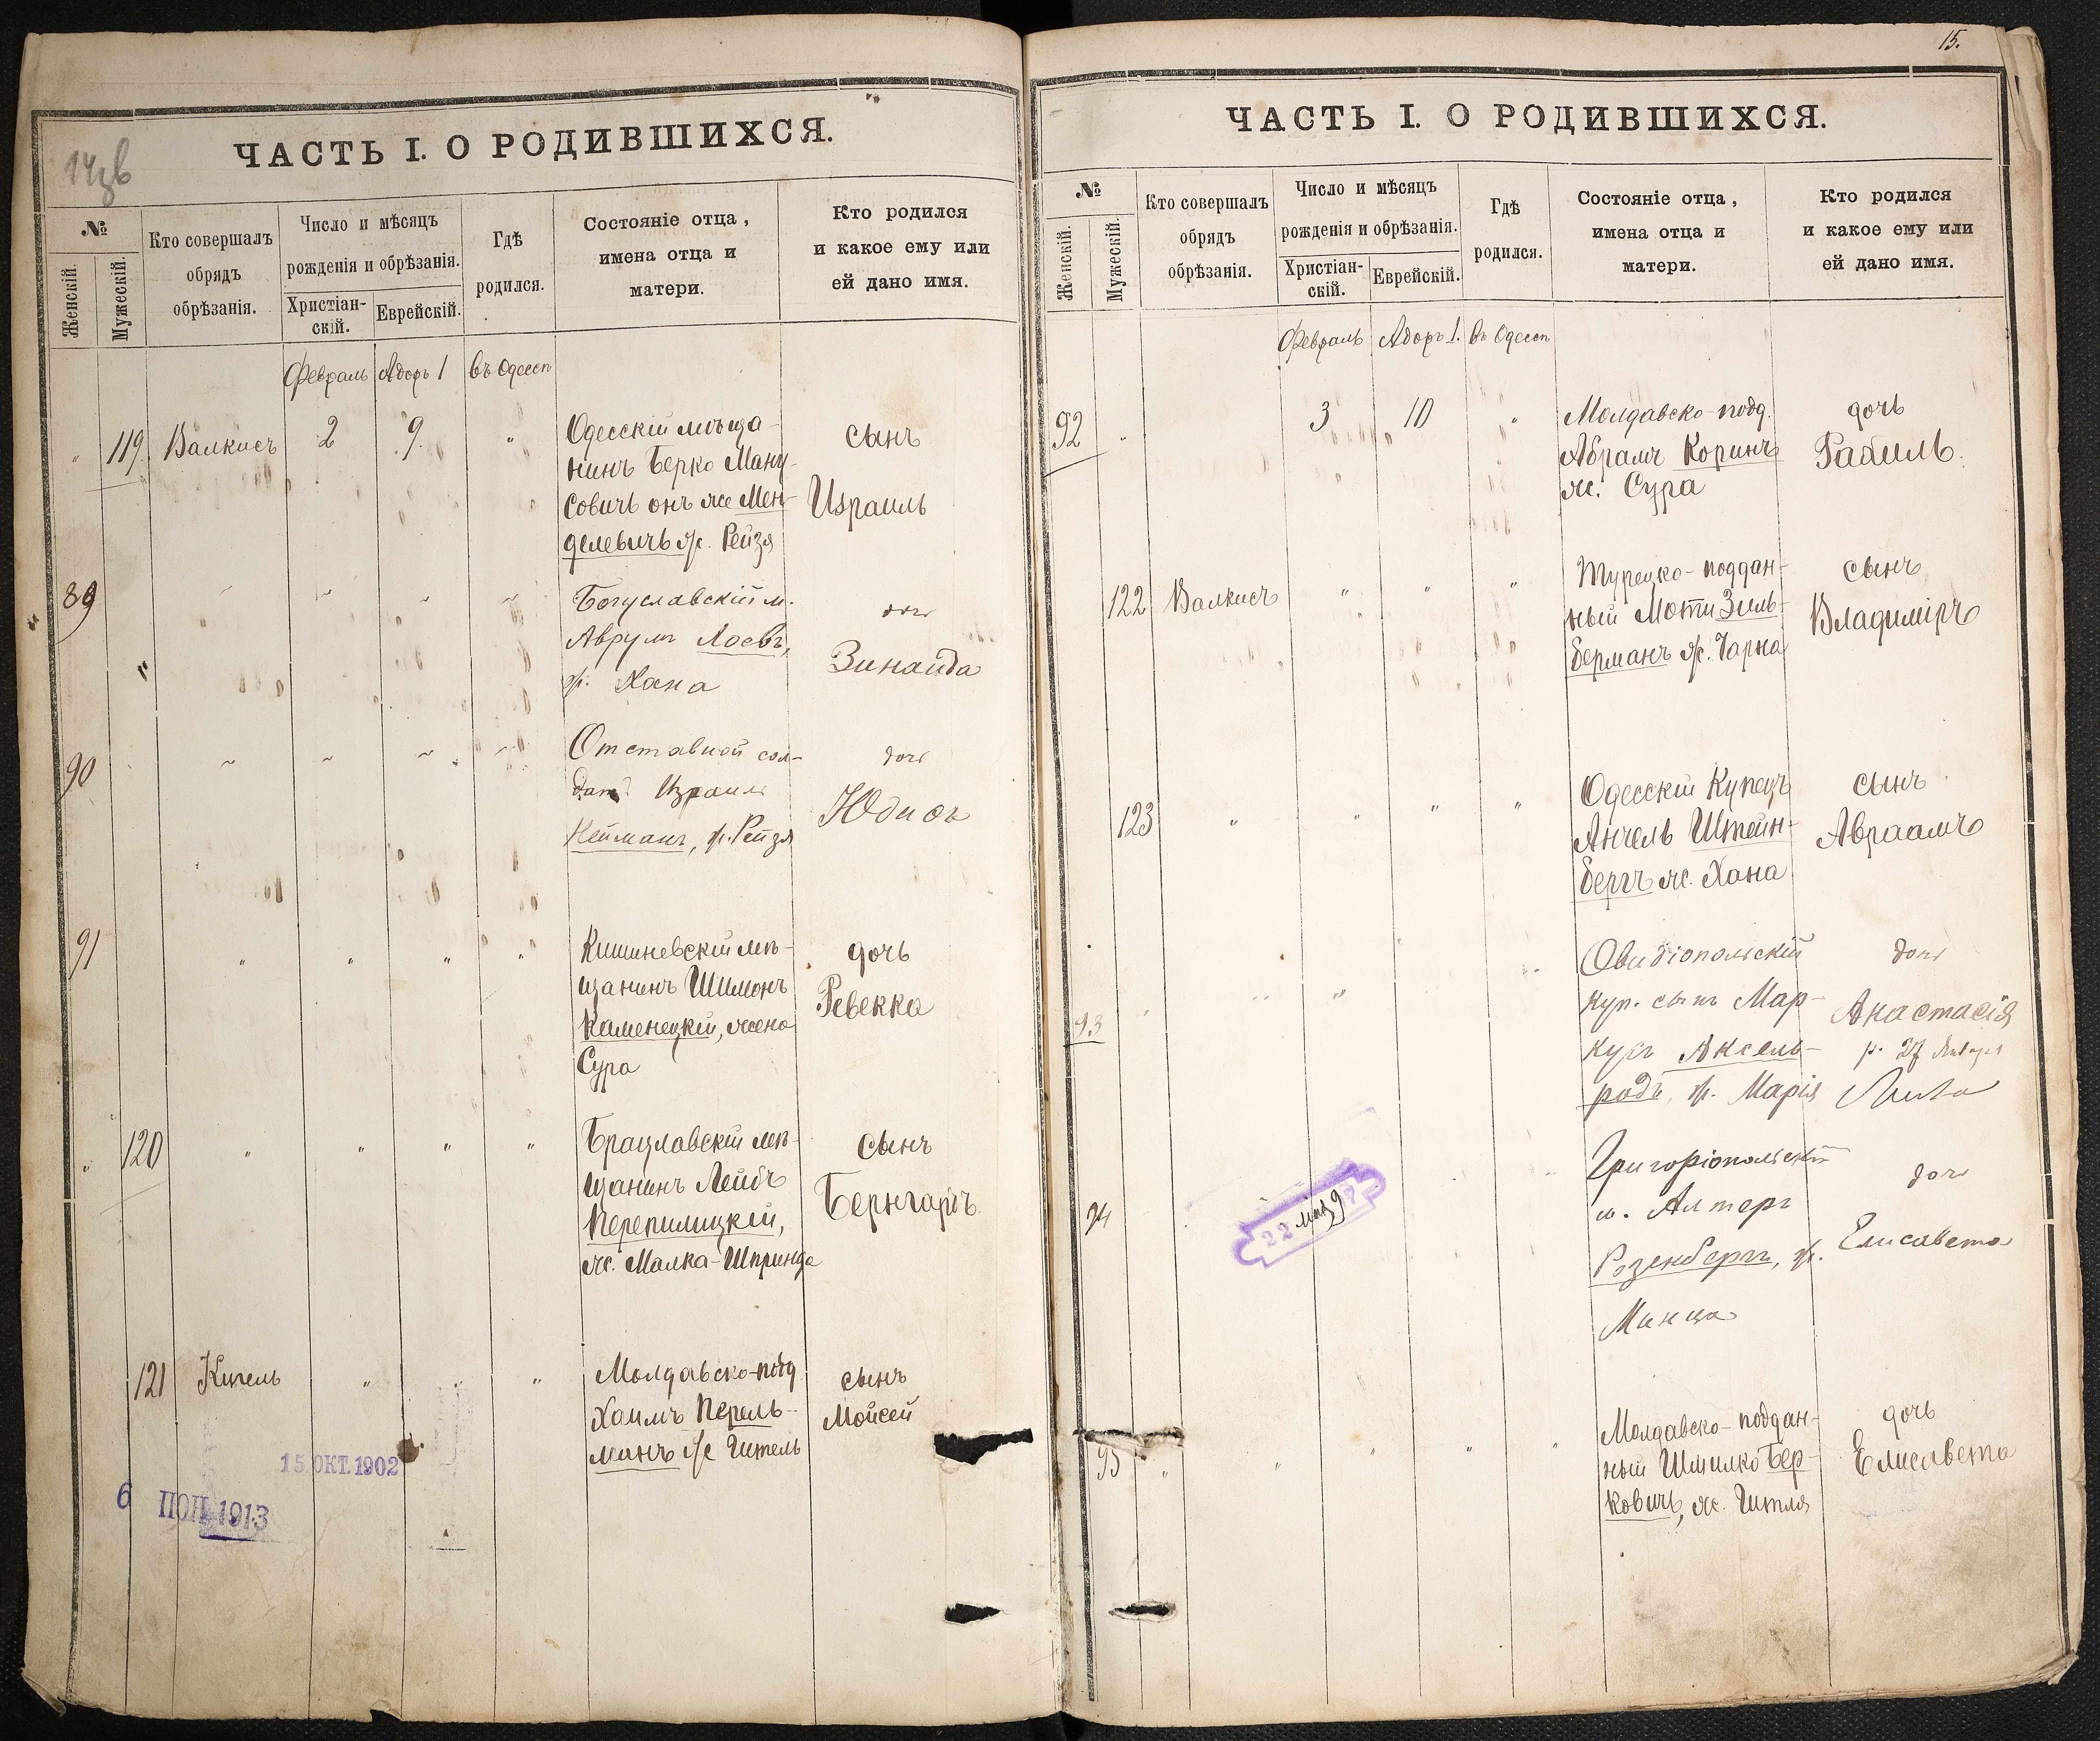 14зв
ЧАСТЬ I. О РОДИВШИХСЯ.
№
Женскій.
Мужескій.
Кто совершалъ
обрядъ
обрѣзанія.
Число и мѣсяцъ
рожденія и обрѣзанія.
Христіан-
скій.
Еврейскій.
Гдѣ
родился.
Состояніе отца,
имена отца и
матери.
Кто родился
и какое ему или
ей дано имя.
Февраль Адоръ 1 въ Одессѣ
" 119 Валкисъ 2 9 "
Одесскій мѣща-
нинъ Берко Ману-
совичъ онъ же Мен-
делевичъ ж. Рейзя
сынъ
Израиль
89
Богуславскій м.
Аврумъ Лоевъ,
ж. Хана
дочь
Зинаида
90
Отставной сол-
датъ Израиль
Нейманъ, ж. Рейзя
дочь
Юдисъ
91 " " " "
Кишиневскій мѣ-
щанинъ Шимонъ
Каменецкій, жена
Сура
дочь
Ревекка
" 120 " " " "
Брацлавскій мѣ-
щанинъ Лейбъ
Перепилицкій,
ж. Малка-Шпринца
сынъ
Бернгардъ
121 Кигель " "
Молдавско-подд
Хаимъ Перель-
манъ ж Гитель
сынъ
Мойсей
15 ОКТ. 1902
6
1913
15.
ЧАСТЬ I. О РОДИВШИХСЯ.
№
Женскій.
Мужескій.
Кто совершалъ
обрядъ
обрѣзанія.
Число и мѣсяцъ
рожденія и обрѣзанія.
Христіан-
скій.
Еврейскій.
Гдѣ
родился.
Состояніе отца,
имена отца и
матери.
Кто родился
и какое ему или
ей дано имя.
Февраль Адоръ 1. въ Одессѣ
92 " 3 10 "
Молдавско-подд.
Абрамъ Коринъ
ж. Сура
дочь
Рахиль.
122 Валкисъ " " "
Турецко-поддан-
ный Моти Зиль-
берманъ ж. Чарна
сынъ
Владиміръ
123 " " " "
Одесскій Купецъ
Анчель Штейн-
бергъ ж. Хана
сынъ
Авраамъ
93
Овидіопольскій
куп. сынъ Мар-
кусъ Аксель-
родъ, ж. Марія
дочь
Анастасія
р. 27 Января
94
Григоріопольскій
м. Алтеръ
Розенбергъ, ж.
Минца
дочь
Елисавета
22
95 " " " " "
Молдавско-поддан-
ный Шмилко Бер-
ковичъ, ж. Гитля
дочь
Елисавета